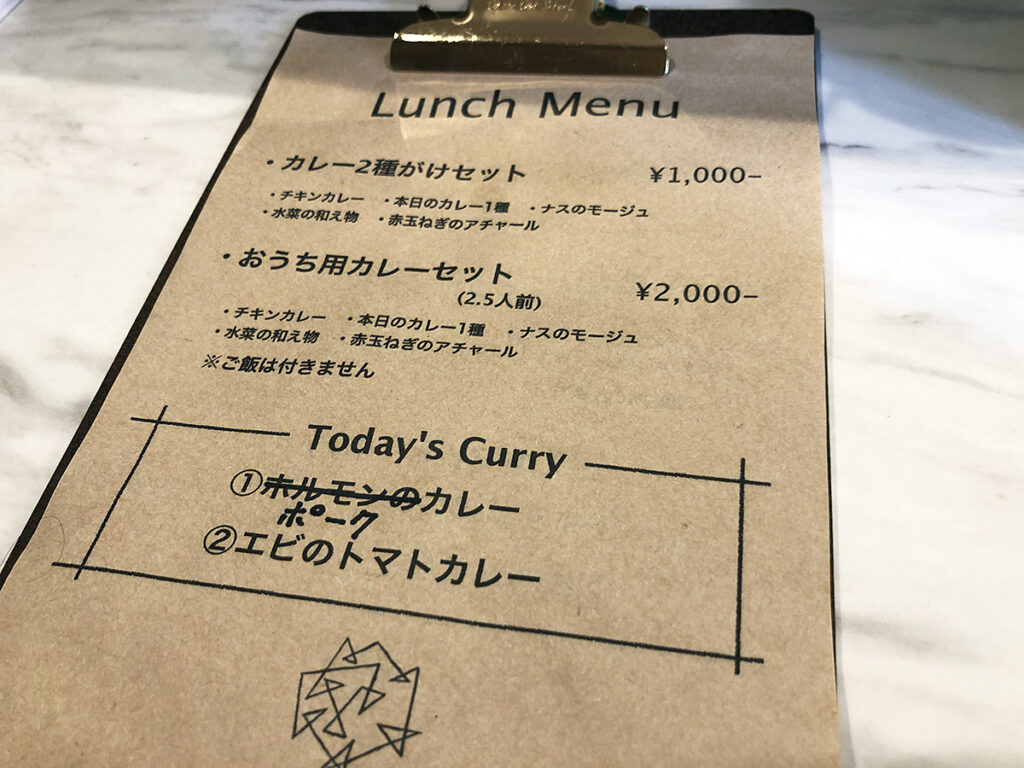 Lunch Menu
・カレー2種がけセット ¥1,000−
・チキンカレー ・本日のカレー1種 ・ナスのモージュ
・水菜の和え物 ・赤玉ねぎのアチャール
・おうち用カレーセット
(2.5人前) ¥2,000−
・チキンカレー ・本日のカレー1種 ・ナスのモージュ
・水菜の和え物 ・赤玉ねぎのアチャール
※ご飯は付きません
Today's Curry
①ホルモンのカレー
ポーク
②エビのトマトカレー